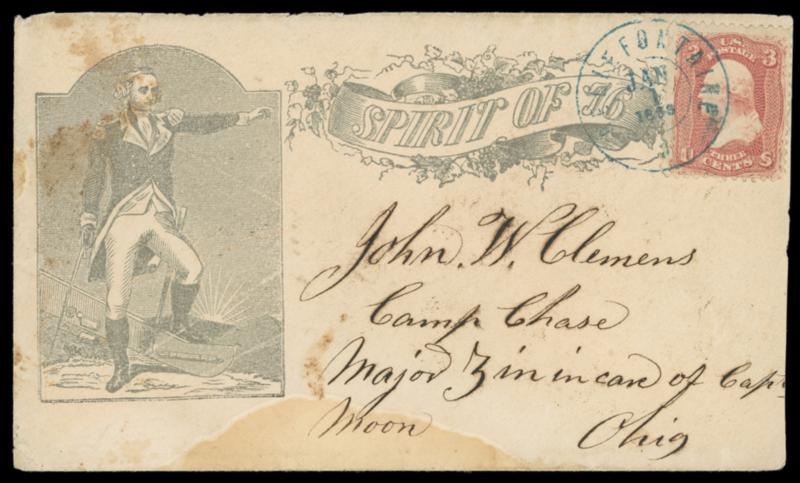 SPIRIT OF 76
BELLEFONTAINE
JAN
1
U.S.
POSTAGE
3 3
THREE
CENTS
John. W. Clemens
Camp Chase
Major 3 in in care of Capt
Moon Ohio